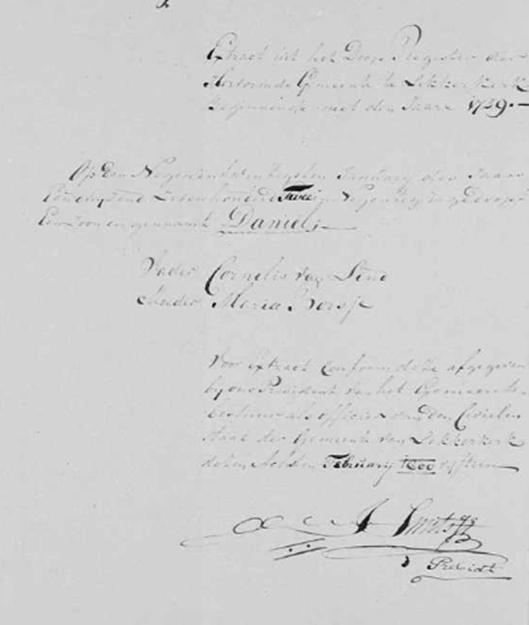 Extract uit het Doop Register der
Hervormde Gemeente te Lekkerkerk
beginnende met den Jaare 1739.—
Op den Negenentwintigsten January des Jaars
Eenduysend Zevenhonderd Twee en Negentig is gedoopt
Een Zoon en genaamt Daniel;
Vader Cornelis van
Moeder Maria
Voor extract conform deze afgegeven
by ons President van het Gemeente
bestuur als officier van den Civielen
staat der Gemeente van Lekkerkerk
dezen Achsten February 1800 vyftien
Smits
President